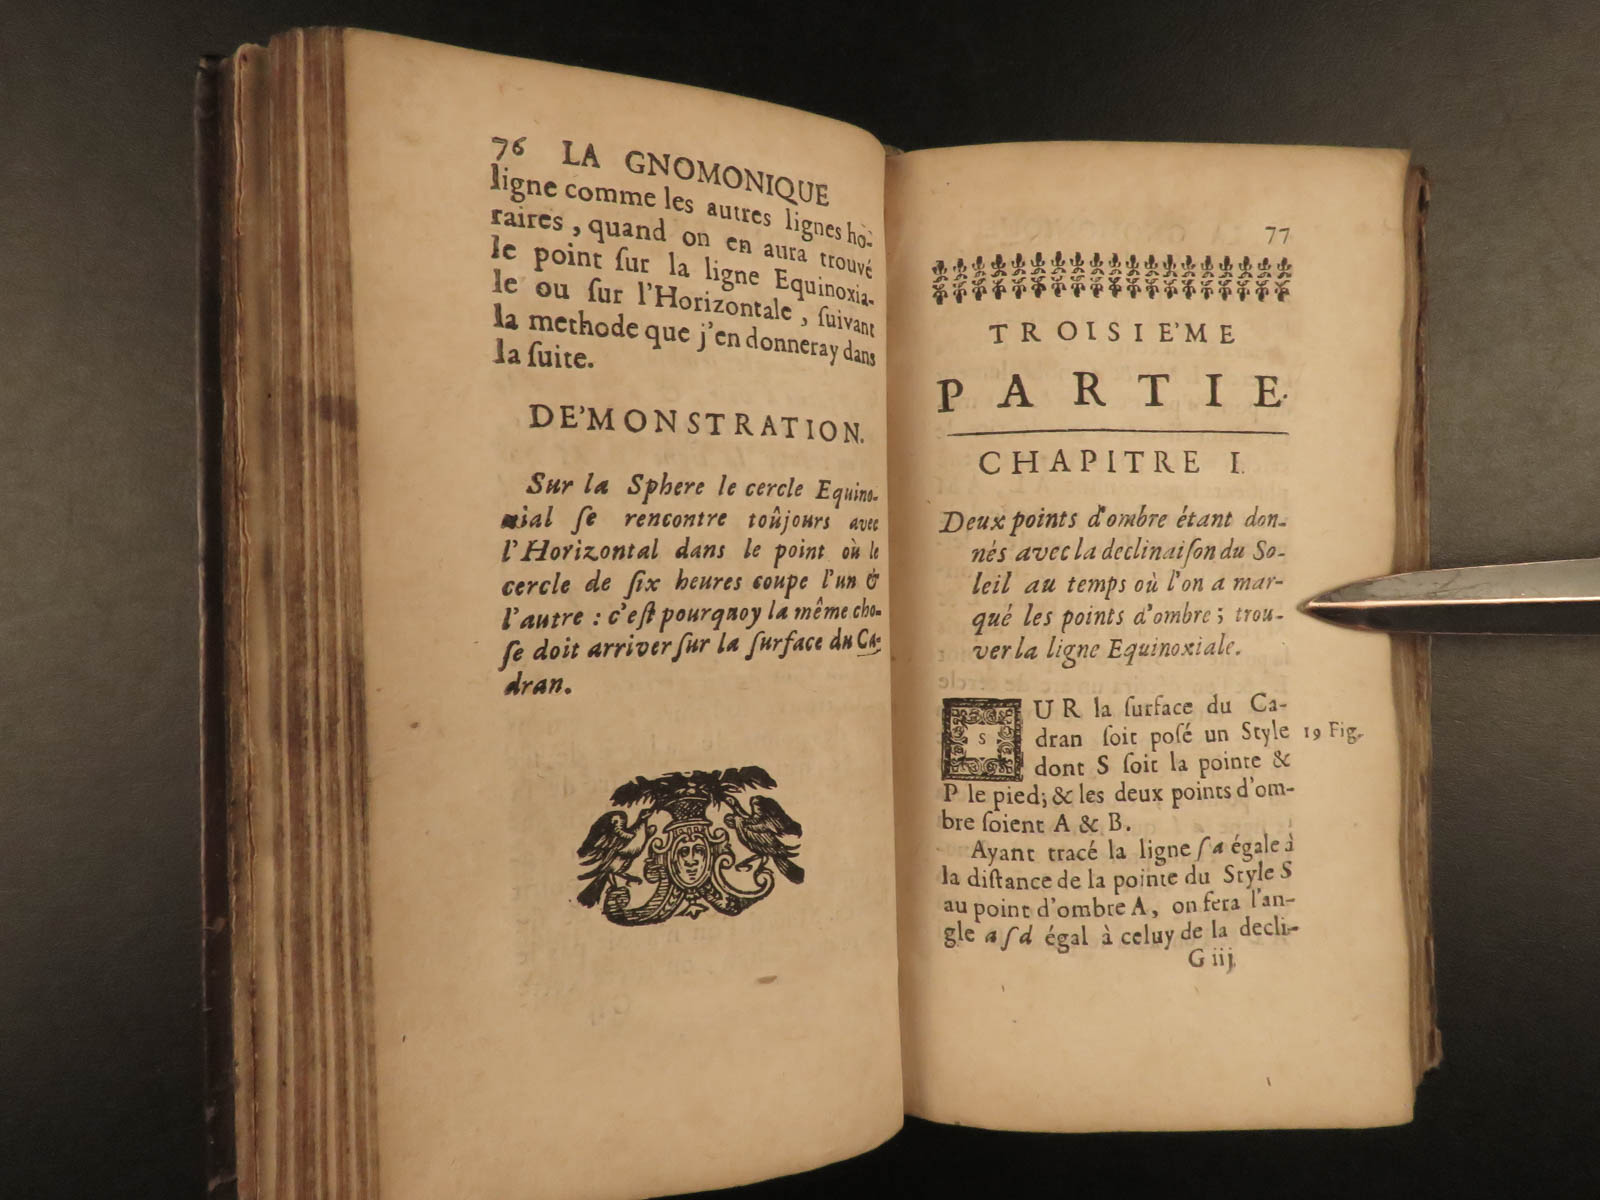 76 LA GNOMONIQUE
ligne comme les autres lignes ho-
raires, quand on en aura trouvé
le point ſur la ligne Equinoxia-
le ou ſur l'Horizontale, ſuivant
la methode que j'en donneray dans
la ſuite.
DE'MONSTRATION.
Sur la Sphere le cercle Equino-
xial ſe rencontre toûjours avec
l'Horizontal dans le point où le
cercle de ſix heures coupe l'un &
l'autre : c'eſt pourquoy la même cho-
ſe doit arriver ſur la ſurface du Ca-
dran.
77
TROISIE'ME
PARTIE.
CHAPITRE I.
Deux points d'ombre étant don-
nés avec la declinaiſon du So-
leil au temps où l'on a mar-
qué les points d'ombre; trou-
ver la ligne Equinoxiale.
SUR la ſurface du Ca-
dran ſoit poſé un Style 19 Fig.
dont S ſoit la pointe &
P le pied; & les deux points d'om-
bre ſoient A & B.
Ayant tracé la ligne ſa égale à
la diſtance de la pointe du Style S
au point d'ombre A, on fera l'an-
gle aſd égal à celuy de la decli-
G iij